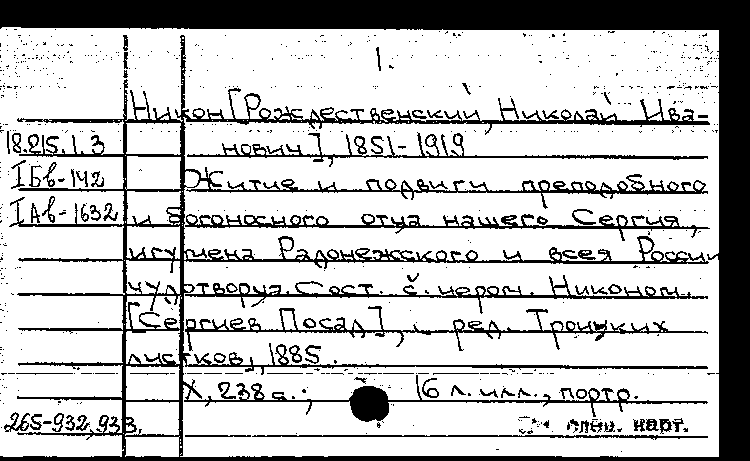 1.
Никон [Рождественский, Николай Ива-
18.215.1.3 нович], 1851-1919
IБв-142 Житие и подвиги преподобного
IАв-1632 и богоносного отца нашего Сергия,
игумена Радонежского и всея России
чудотворца. Сост. иером. Никоном.
[Сергиев Посад], ред. Троицких
листков, 1885.
X, 238 с.; 16 л. илл., портр.
265-932, 933. спец. карт.